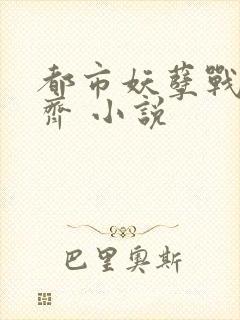 都市妖孽戰
齊 小說
巴里奧斯